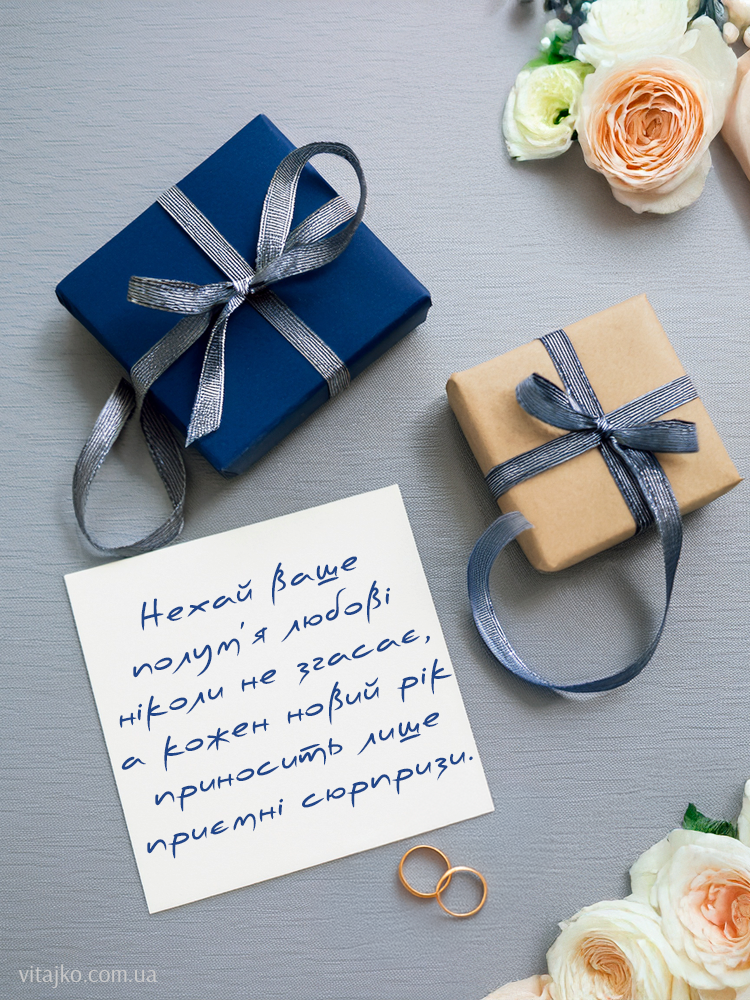 Нехай ваше
полум'я любові
ніколи не згасає,
а кожен новий рік
приносить лише
приємні сюрпризи.
vitajko.com.ua